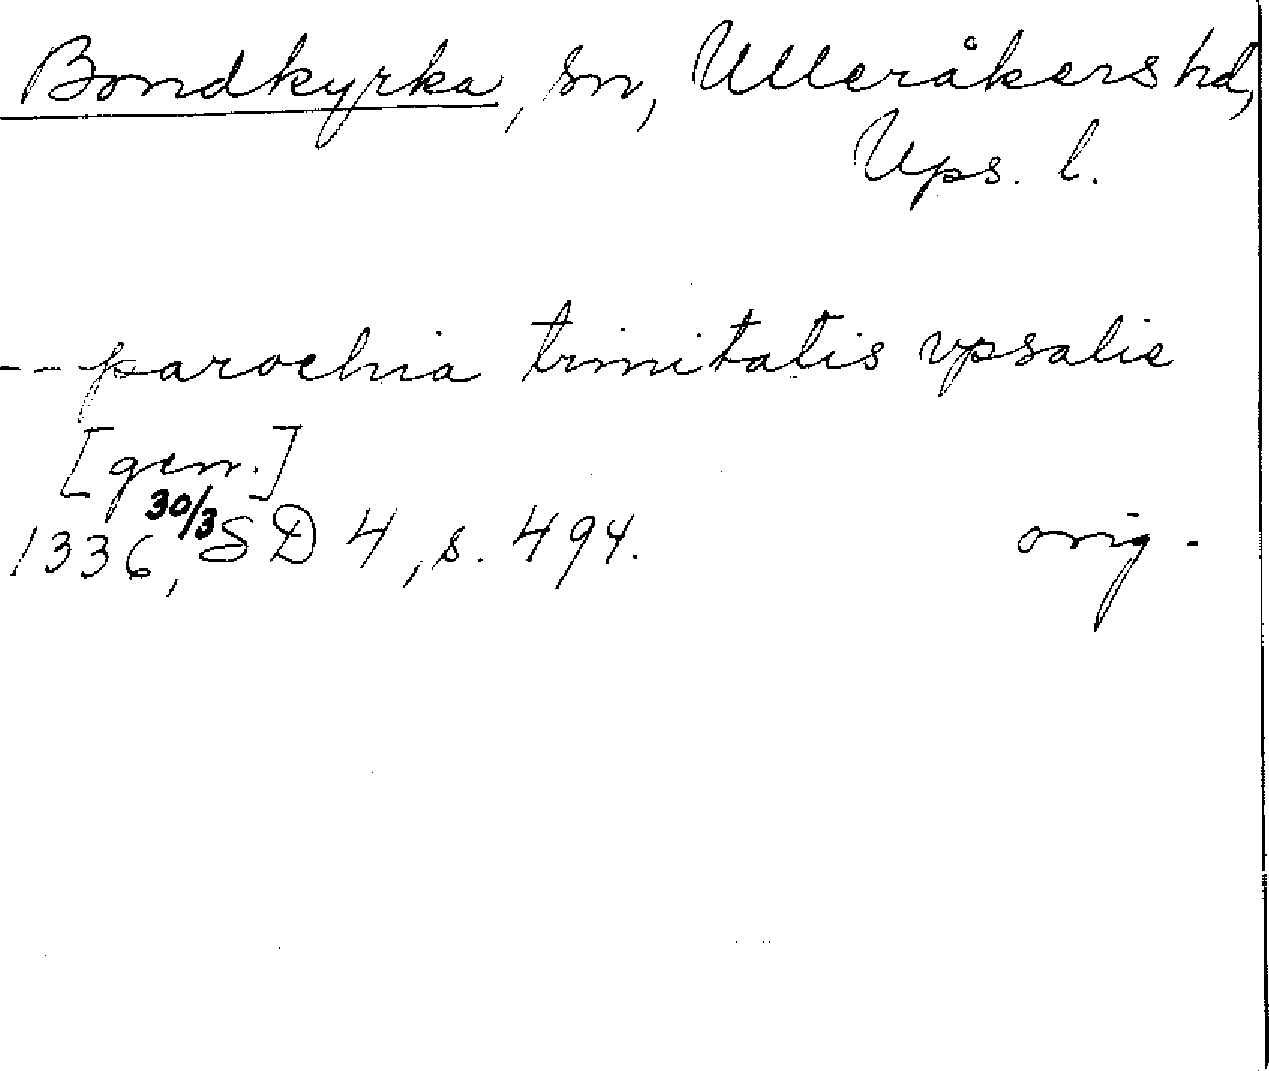 Bondkyrka, sn, Ulleråkers hd,
Ups. l.
-- parochia trinitatis vpsalie
[gen.]
1336, 30/3 SD 4, s. 494.
orig.